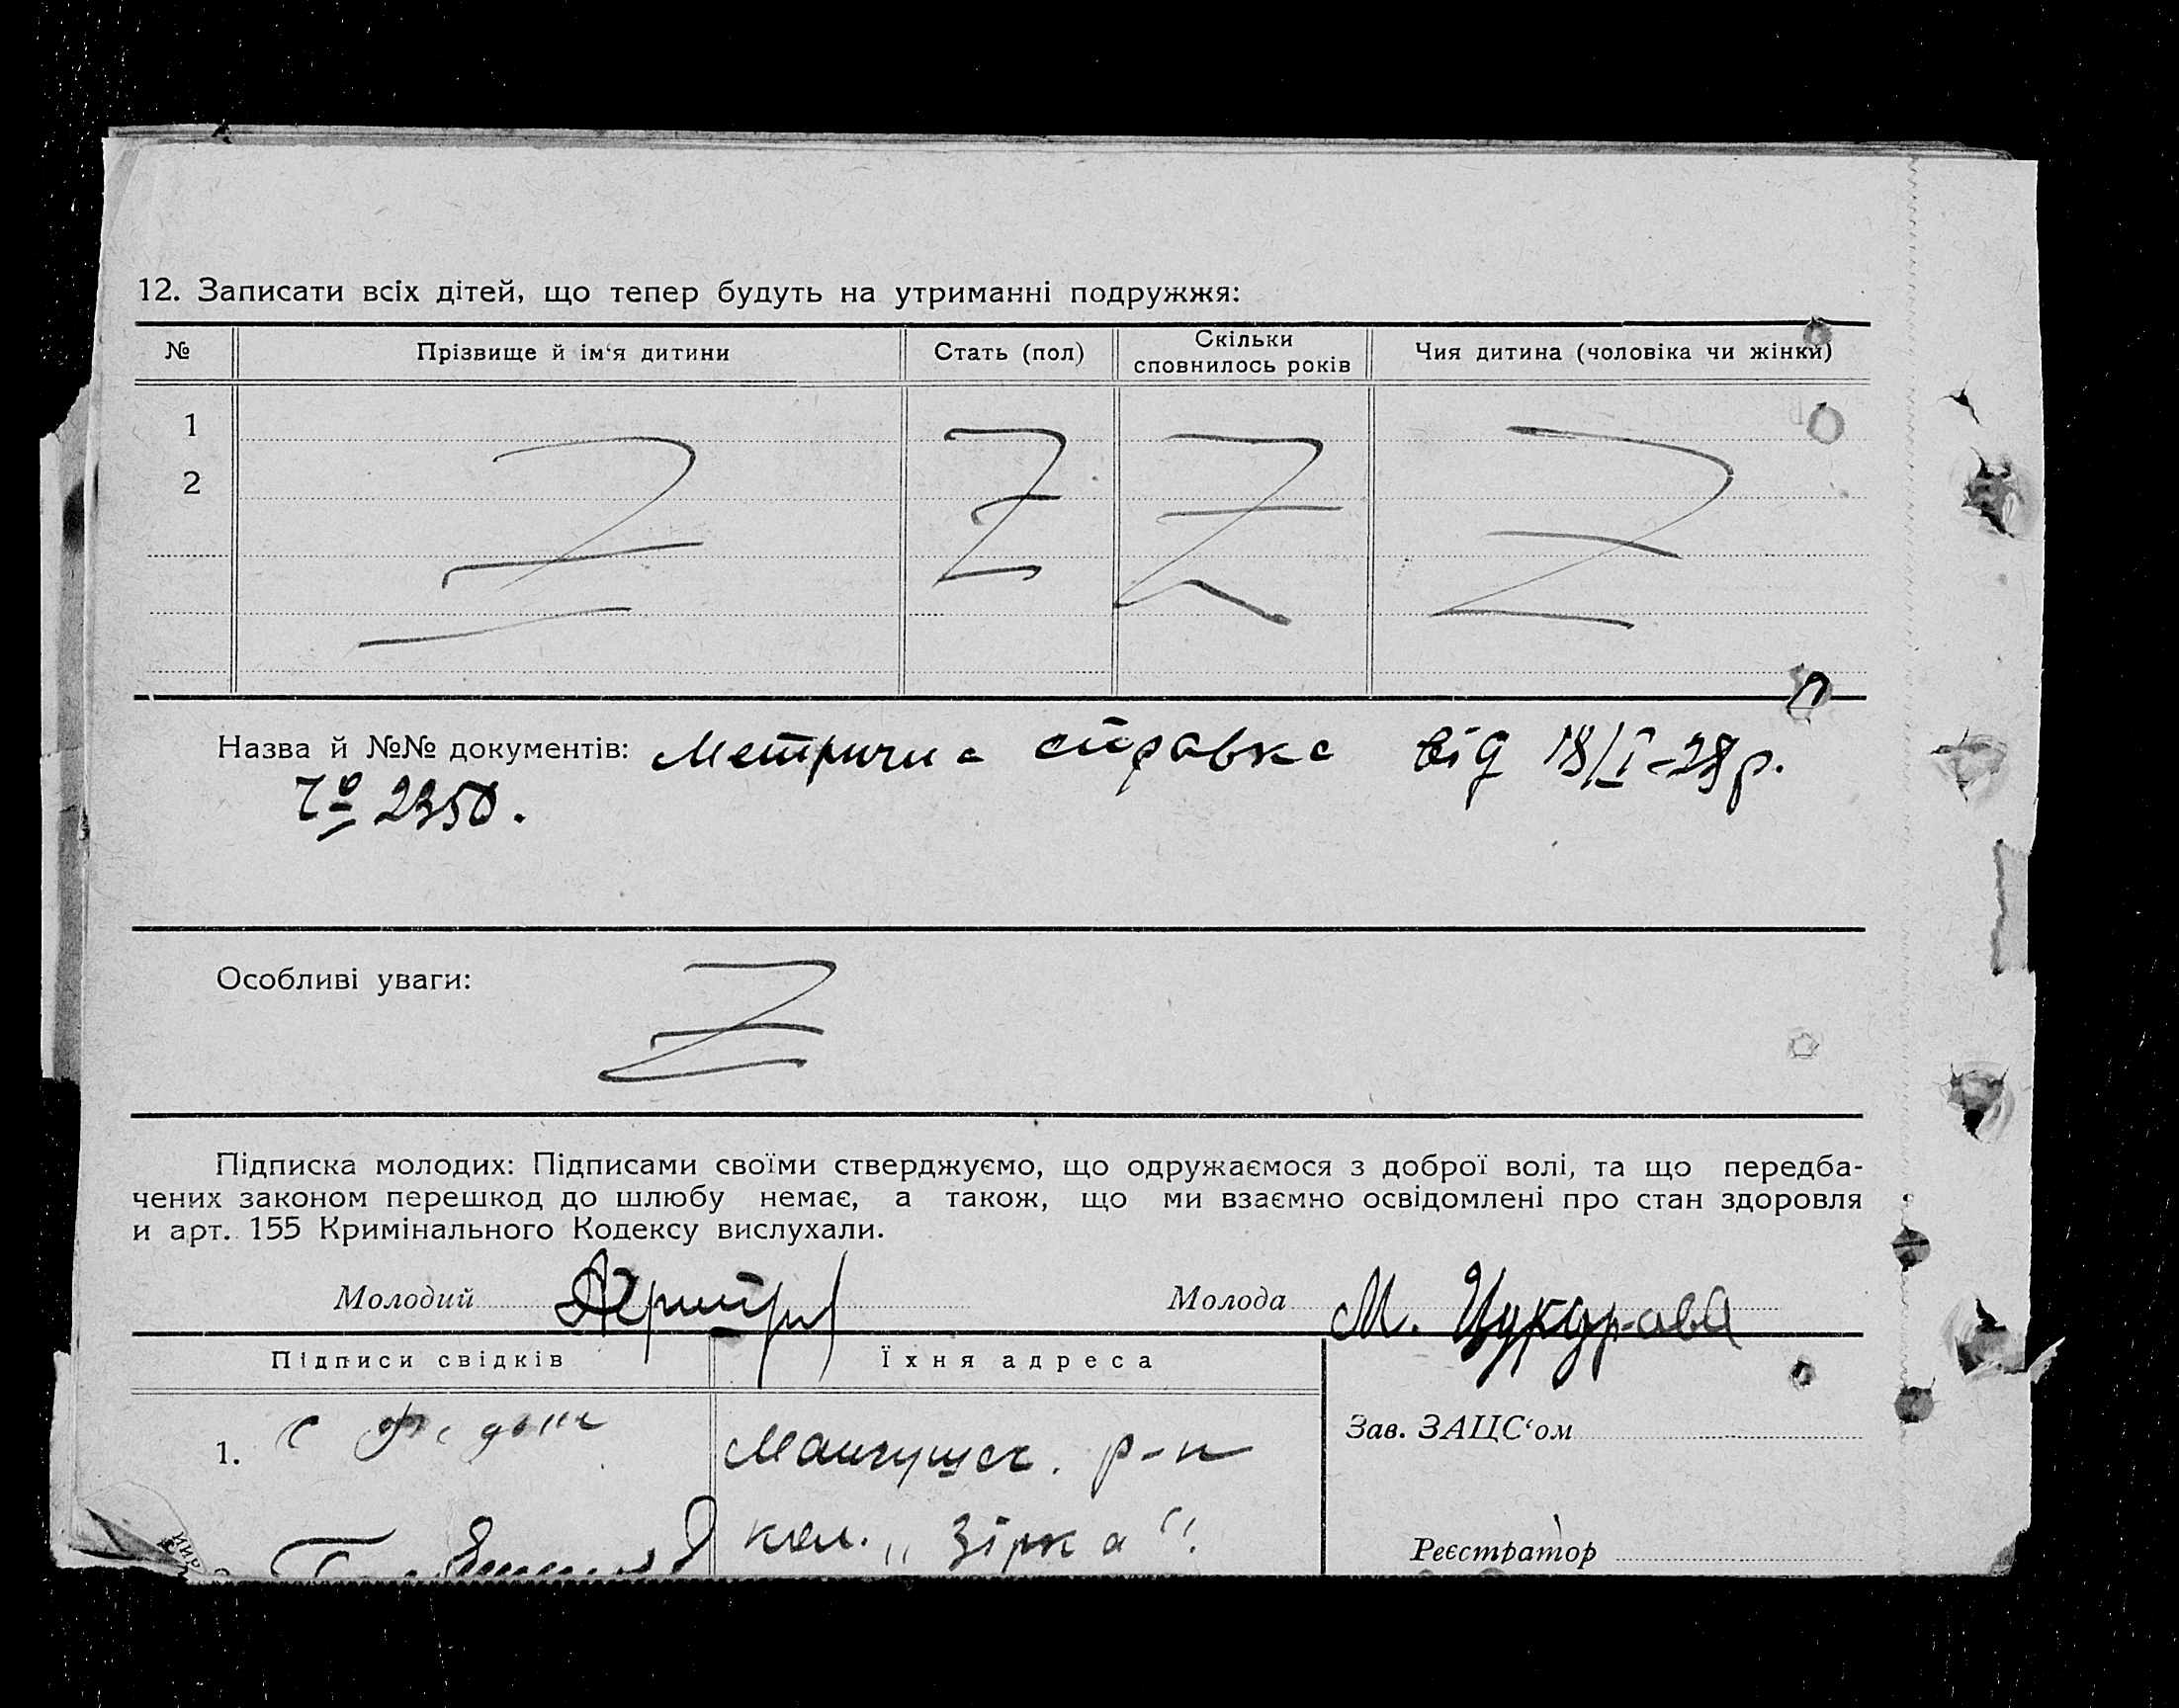 12. Записати всіх дітей, що тепер будуть на утриманні подружжя:
№ Прізвище й ім'я дитини Стать (пол) Скільки сповнилось років Чия дитина (чоловіка чи жінки)
1
2
Назва й №№ документів: Метрична справка від 18/I-28 р.
2350.
Особливі уваги:
Підписка молодих: Підписами своїми стверджуємо, що одружаємося з доброї волі, та що передба-
чених законом перешкод до шлюбу немає, а також, що ми взаємно освідомлені про стан здоровля
и арт. 155 Кримінального Кодексу вислухали.
Молодий Молода М.
Підписи свідків Їхня адреса
1. Мангушск. р-н
Зав. ЗАЦС'ом
кол. „Зірка“.
Реєстратор